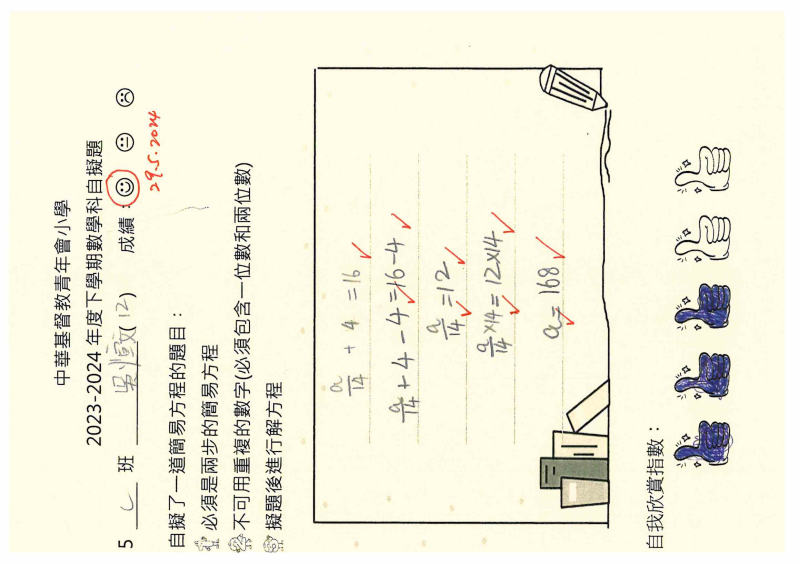 中華基督教青年會小學
2023-2024 年度下學期數學科自擬題
5 C 班 (12) 成績：
29.5.2024
自擬了一道簡易方程的題目：
必須是兩步的簡易方程
不可用重複的數字(必須包含一位數和兩位數)
擬題後進行解方程
a/14 + 4 = 16
a/14 + 4 - 4 = 16 - 4
a/14 = 12
a/14 × 14 = 12 × 14
a = 168
自我欣賞指數：